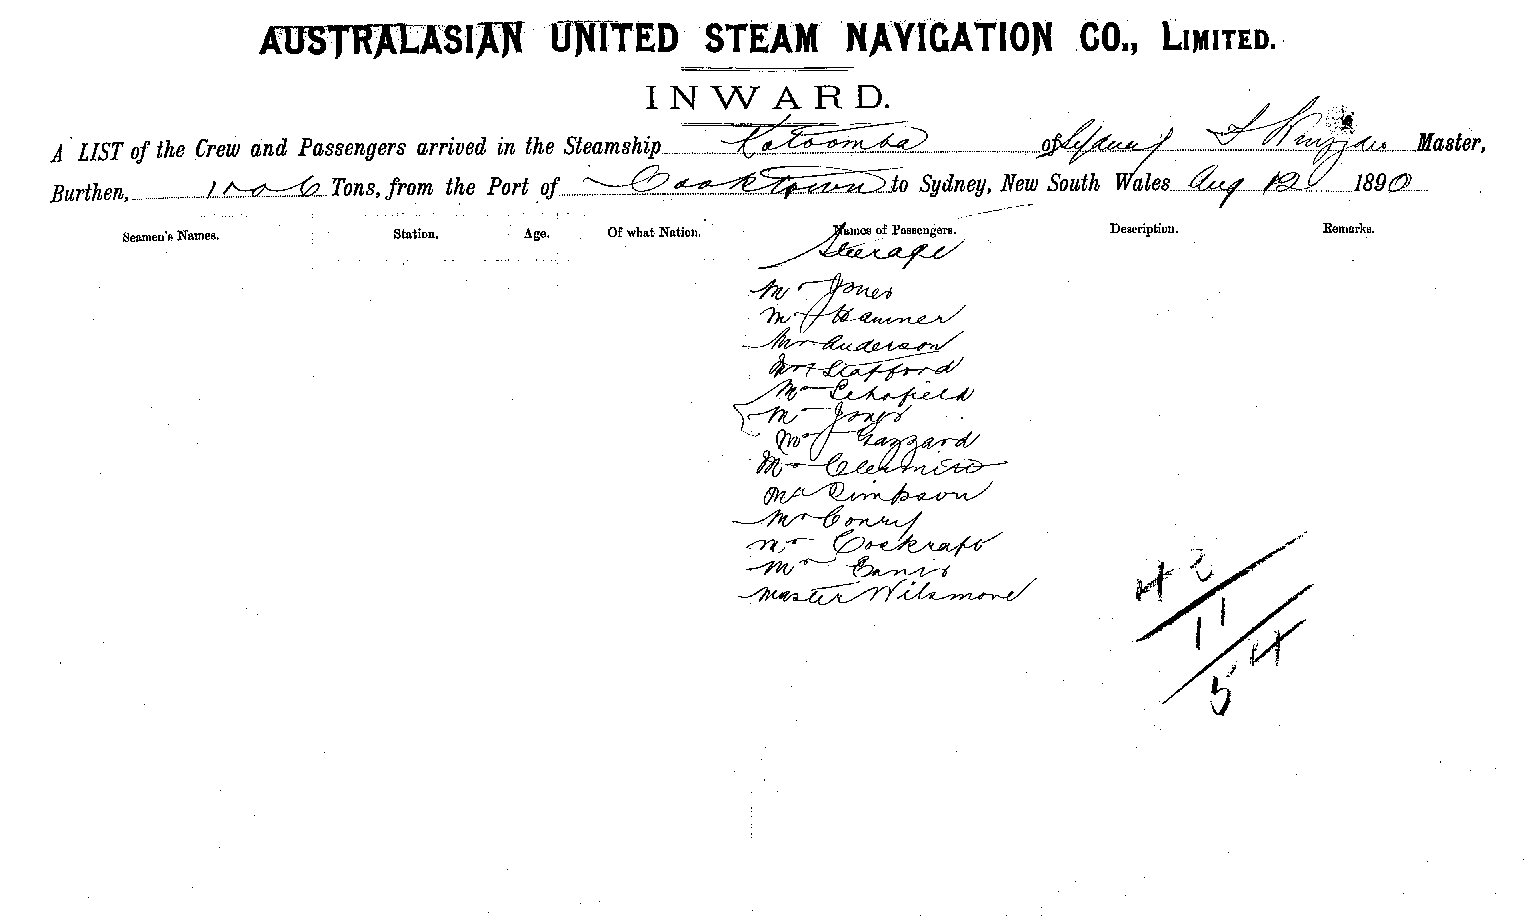 AUSTRALASIAN UNITED STEAM NAVIGATION CO., LIMITED.
INWARD.
A LIST of the Crew and Passengers arrived in the Steamship Katoomba of Sydney Master,
Burthen, 1006 Tons, from the Port of Cooktown to Sydney, New South Wales Aug 12 1890
Seamen's Names. Station. Age. Of what Nation. Names of Passengers. Description. Remarks.
Steerage
Mr Jones
Mr Hammer
Mr Anderson
Mrs Stafford
Mr Schofield
Mr Jones
Mr Gazzard
Mr
Mr Simpson
Mr Conry
Mr Cockraft
Mr
Master Wilsmore
42
11
54